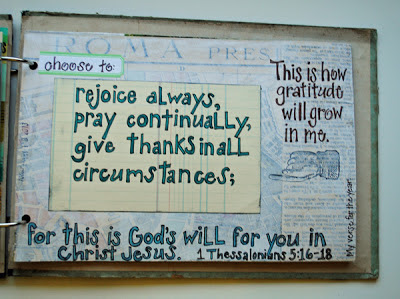 ROMA PRESS
choose to:
rejoice always,
pray continually,
give thanks in all
circumstances;
This is how
gratitude
will grow
in me.
My verse for the year
for this is God's will for you in
Christ Jesus. 1 Thessalonians 5:16-18